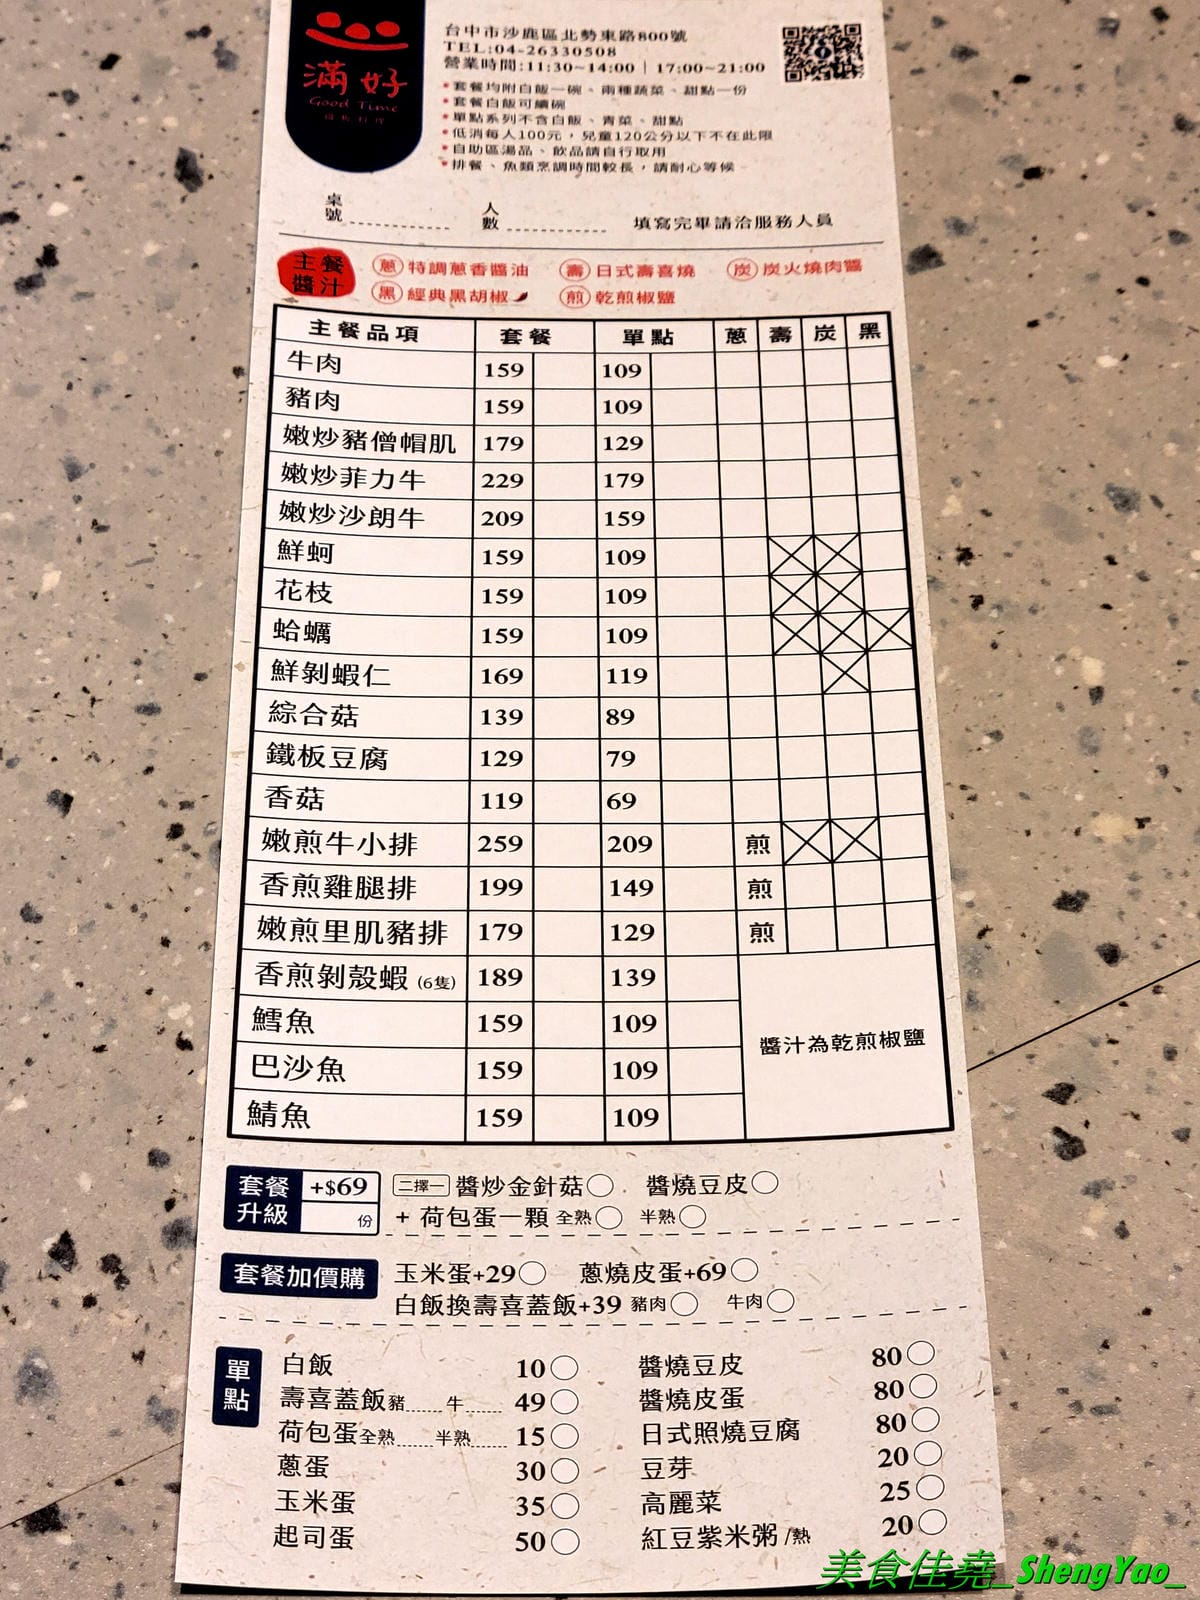 滿好
Good Time
台中市沙鹿區北勢東路800號
TEL:04-26330508
營業時間:11:30~14:00｜17:00~21:00
•套餐均附白飯一碗、兩種蔬菜、甜點一份
•套餐白飯可續碗
•單點系列不含白飯、青菜、甜點
•低消每人100元，兒童120公分以下不在此限
•自助區湯品、飲品請自行取用
•排餐、魚類烹調時間較長，請耐心等候
桌號 人數 填寫完畢請洽服務人員
主餐醬汁
蔥 特調蔥香醬油 壽 日式壽喜燒 炭 炭火燒肉醬
黑 經典黑胡椒 煎 乾煎椒鹽
主餐品項 套餐 單點 蔥 壽 炭 黑
牛肉 159 109
豬肉 159 109
嫩炒豬僧帽肌 179 129
嫩炒菲力牛 229 179
嫩炒沙朗牛 209 159
鮮蚵 159 109
花枝 159 109
蛤蠣 159 109
鮮剝蝦仁 169 119
綜合菇 139 89
鐵板豆腐 129 79
香菇 119 69
嫩煎牛小排 259 209 煎
香煎雞腿排 199 149 煎
嫩煎里肌豬排 179 129 煎
香煎剝殼蝦 (6隻) 189 139
鱈魚 159 109
醬汁為乾煎椒鹽
巴沙魚 159 109
鯖魚 159 109
套餐升級 +$69 份
二擇一 醬炒金針菇 醬燒豆皮
+ 荷包蛋一顆 全熟 半熟
套餐加價購 玉米蛋+29 蔥燒皮蛋+69
白飯換壽喜蓋飯+39 豬肉 牛肉
單點
白飯 10 醬燒豆皮 80
壽喜蓋飯 豬 牛 49 醬燒皮蛋 80
荷包蛋 全熟 半熟 15 日式照燒豆腐 80
蔥蛋 30 豆芽 20
玉米蛋 35 高麗菜 25
起司蛋 50 紅豆紫米粥/熱 20
美食佳堯_ShengYao_